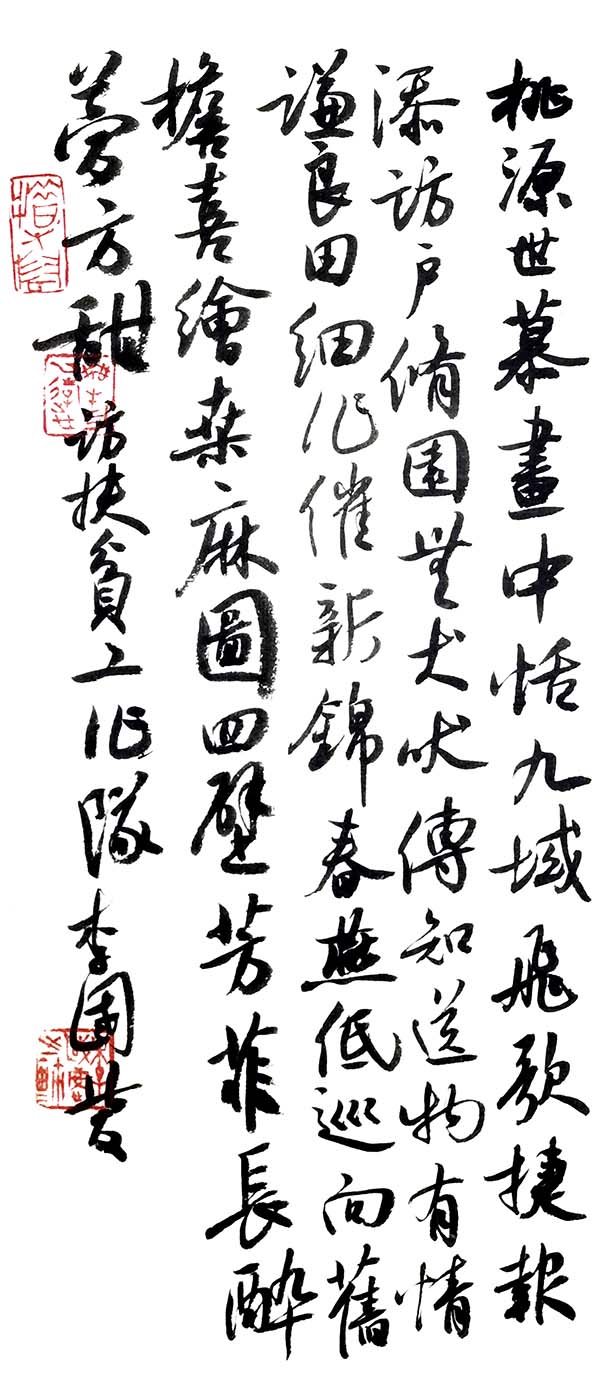 桃源世慕畫中恬九域飛歌捷報
添訪戶脩園無犬吠傳知送物有情
謙良田細作催新錦春燕低巡向舊
檐喜繪桑麻圖四壁芳菲長醉
夢方甜 訪扶貧工作隊 李